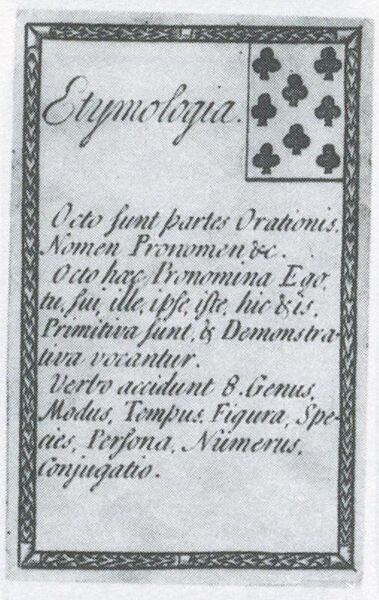 Etymologia.
Octo sunt partes Orationis,
Nomen Pronomen &c.
Octo hæc Pronomina Ego,
tu, sui, ille, ipse, iste, hic & is,
Primitiva sunt, & Demonstra-
tiva vocantur.
Verbo accidunt 8. Genus,
Modus, Tempus, Figura, Spe-
cies, Persona, Nůmerus,
Conjugatio.